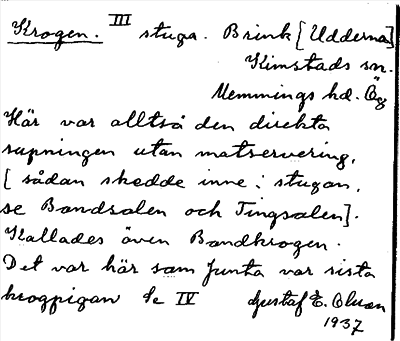 Krogen. III stuga. Brink [Udderna]
Kimstads sn.
Memmings hd. Ög
Här var alltså den direkta
supningen utan matservering,
[sådan skedde inne i stugan,
se Bondsalen och Tingsalen].
Kallades även Bondkrogen.
Det var här som Junta var sista
krogpigan se IV Gustaf E. Olsson
1937